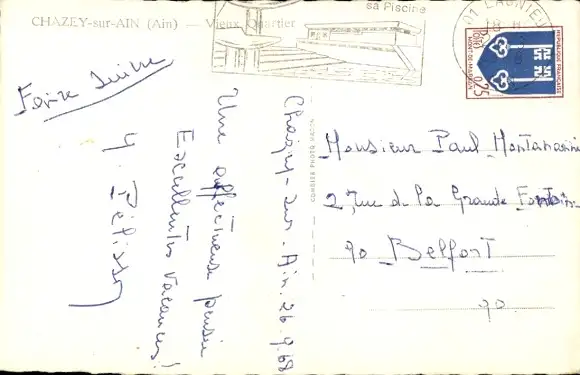 CHAZEY-sur-AIN (Ain) — Vieux Quartier
sa Piscine
01 LAGNIEU
18 H
REPUBLIQUE FRANÇAISE
MONT-DE-MARSAN
0,25
Chazey-sur-Ain. 26.9.68
Une affectueuse pensée
Excellentes vacances!
Y. Pélisson
Faire suivre
COMBIER PHOTO MACON
Monsieur Paul
2, rue de la Grande Fontaine
90 Belfort
90